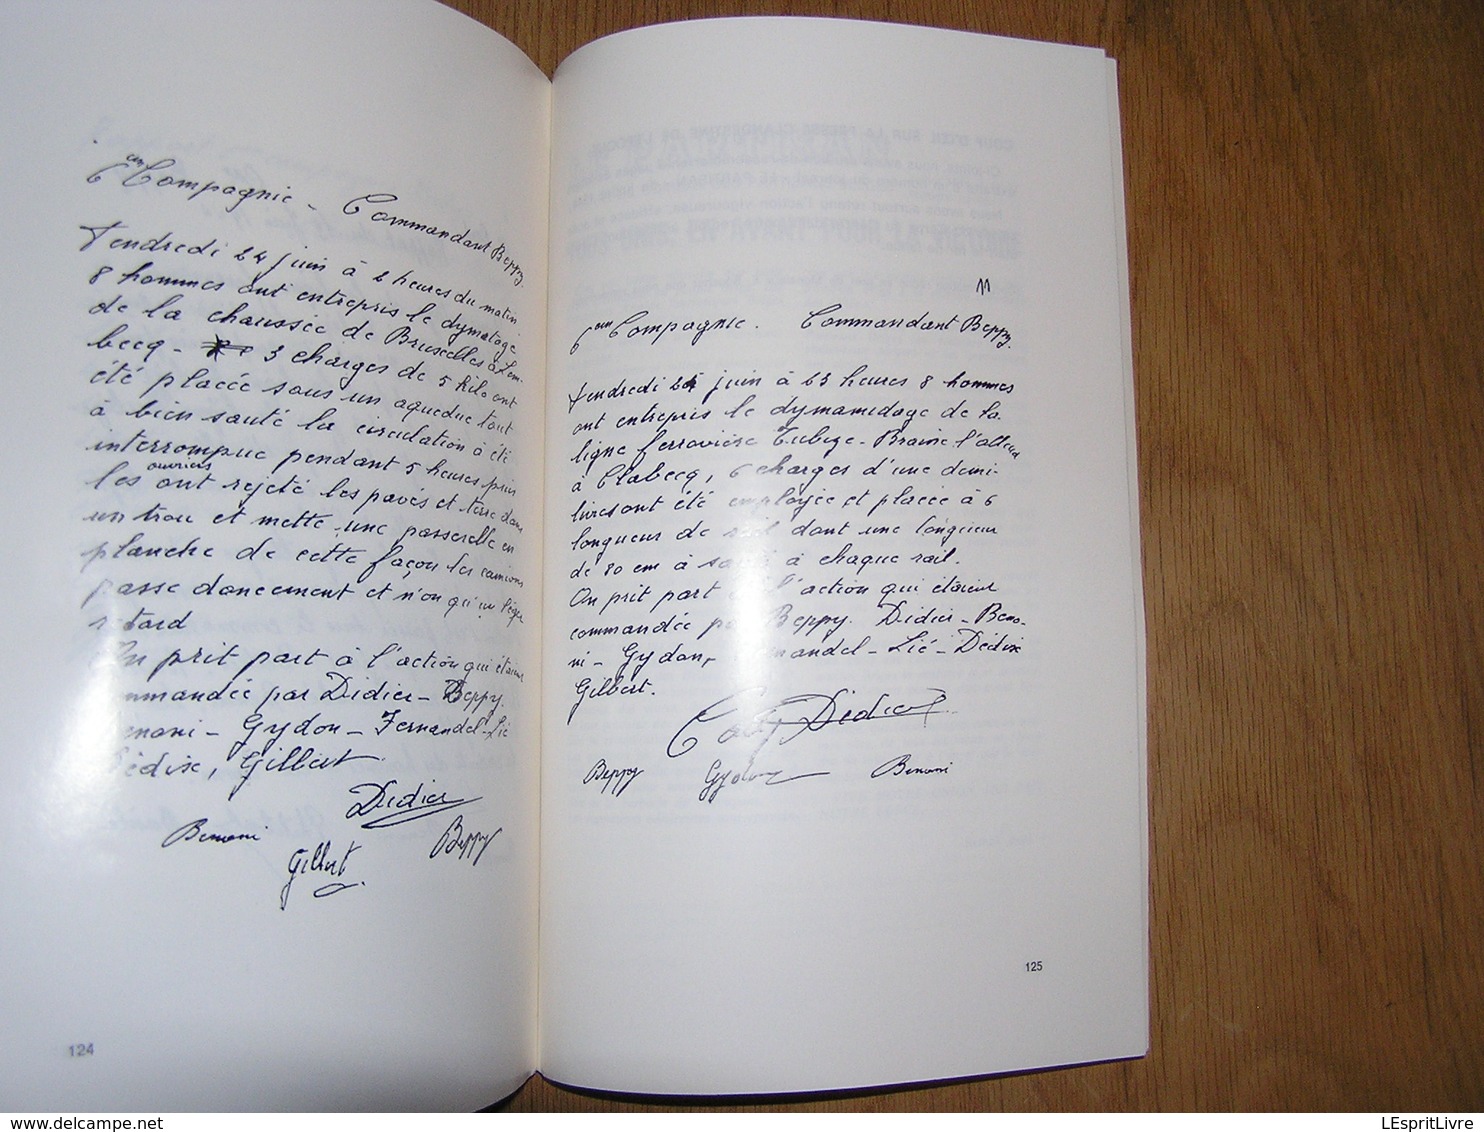 6em Compagnie - Commandant Beppy.
Vendredi 24 juin à 2 heures du matin
8 hommes ont entrepris le dymatage
de la chaussée de Bruxelles à Lem-
becq - 3 charges de 5 kilo ont
été placée sous un aqueduc tout
à bien sauté la circulation à été
interrompue pendant 5 heures puis
les ouvriers ont rejeté les pavés et terre dans
un trou et mette une passerelle en
planche de cette façon les camions
passe doncement et n'on qu'un léger
retard
On prit part à l'action qui étaient
mmandée par Didier - Beppy.
enoni - Gydon - Fernandel - Lié
édise, Gilbert.
Didier
Benoni
Beppy
Gilbert
124
11
6em Compagnie. Commandant Beppy.
Vendredi 24 juin à 23 heures 8 hommes
ont entrepris le dymamidage de la
ligne ferroviaire Tubize - Braine l'alleud
à Clabecq, 6 charges d'une demi-
livres ont été employée et placée à 6
longueurs de rail dont une longueur
de 80 cm à sauté à chaque rail.
On prit part à l'action qui étaient
commandée par Beppy. Didier - Beno-
ni - Gydon, Fernandel - Lié - Dédise
Gilbert.
Didier
Beppy Gydon Benoni
125
LEspritLivre
www.delcampe.net